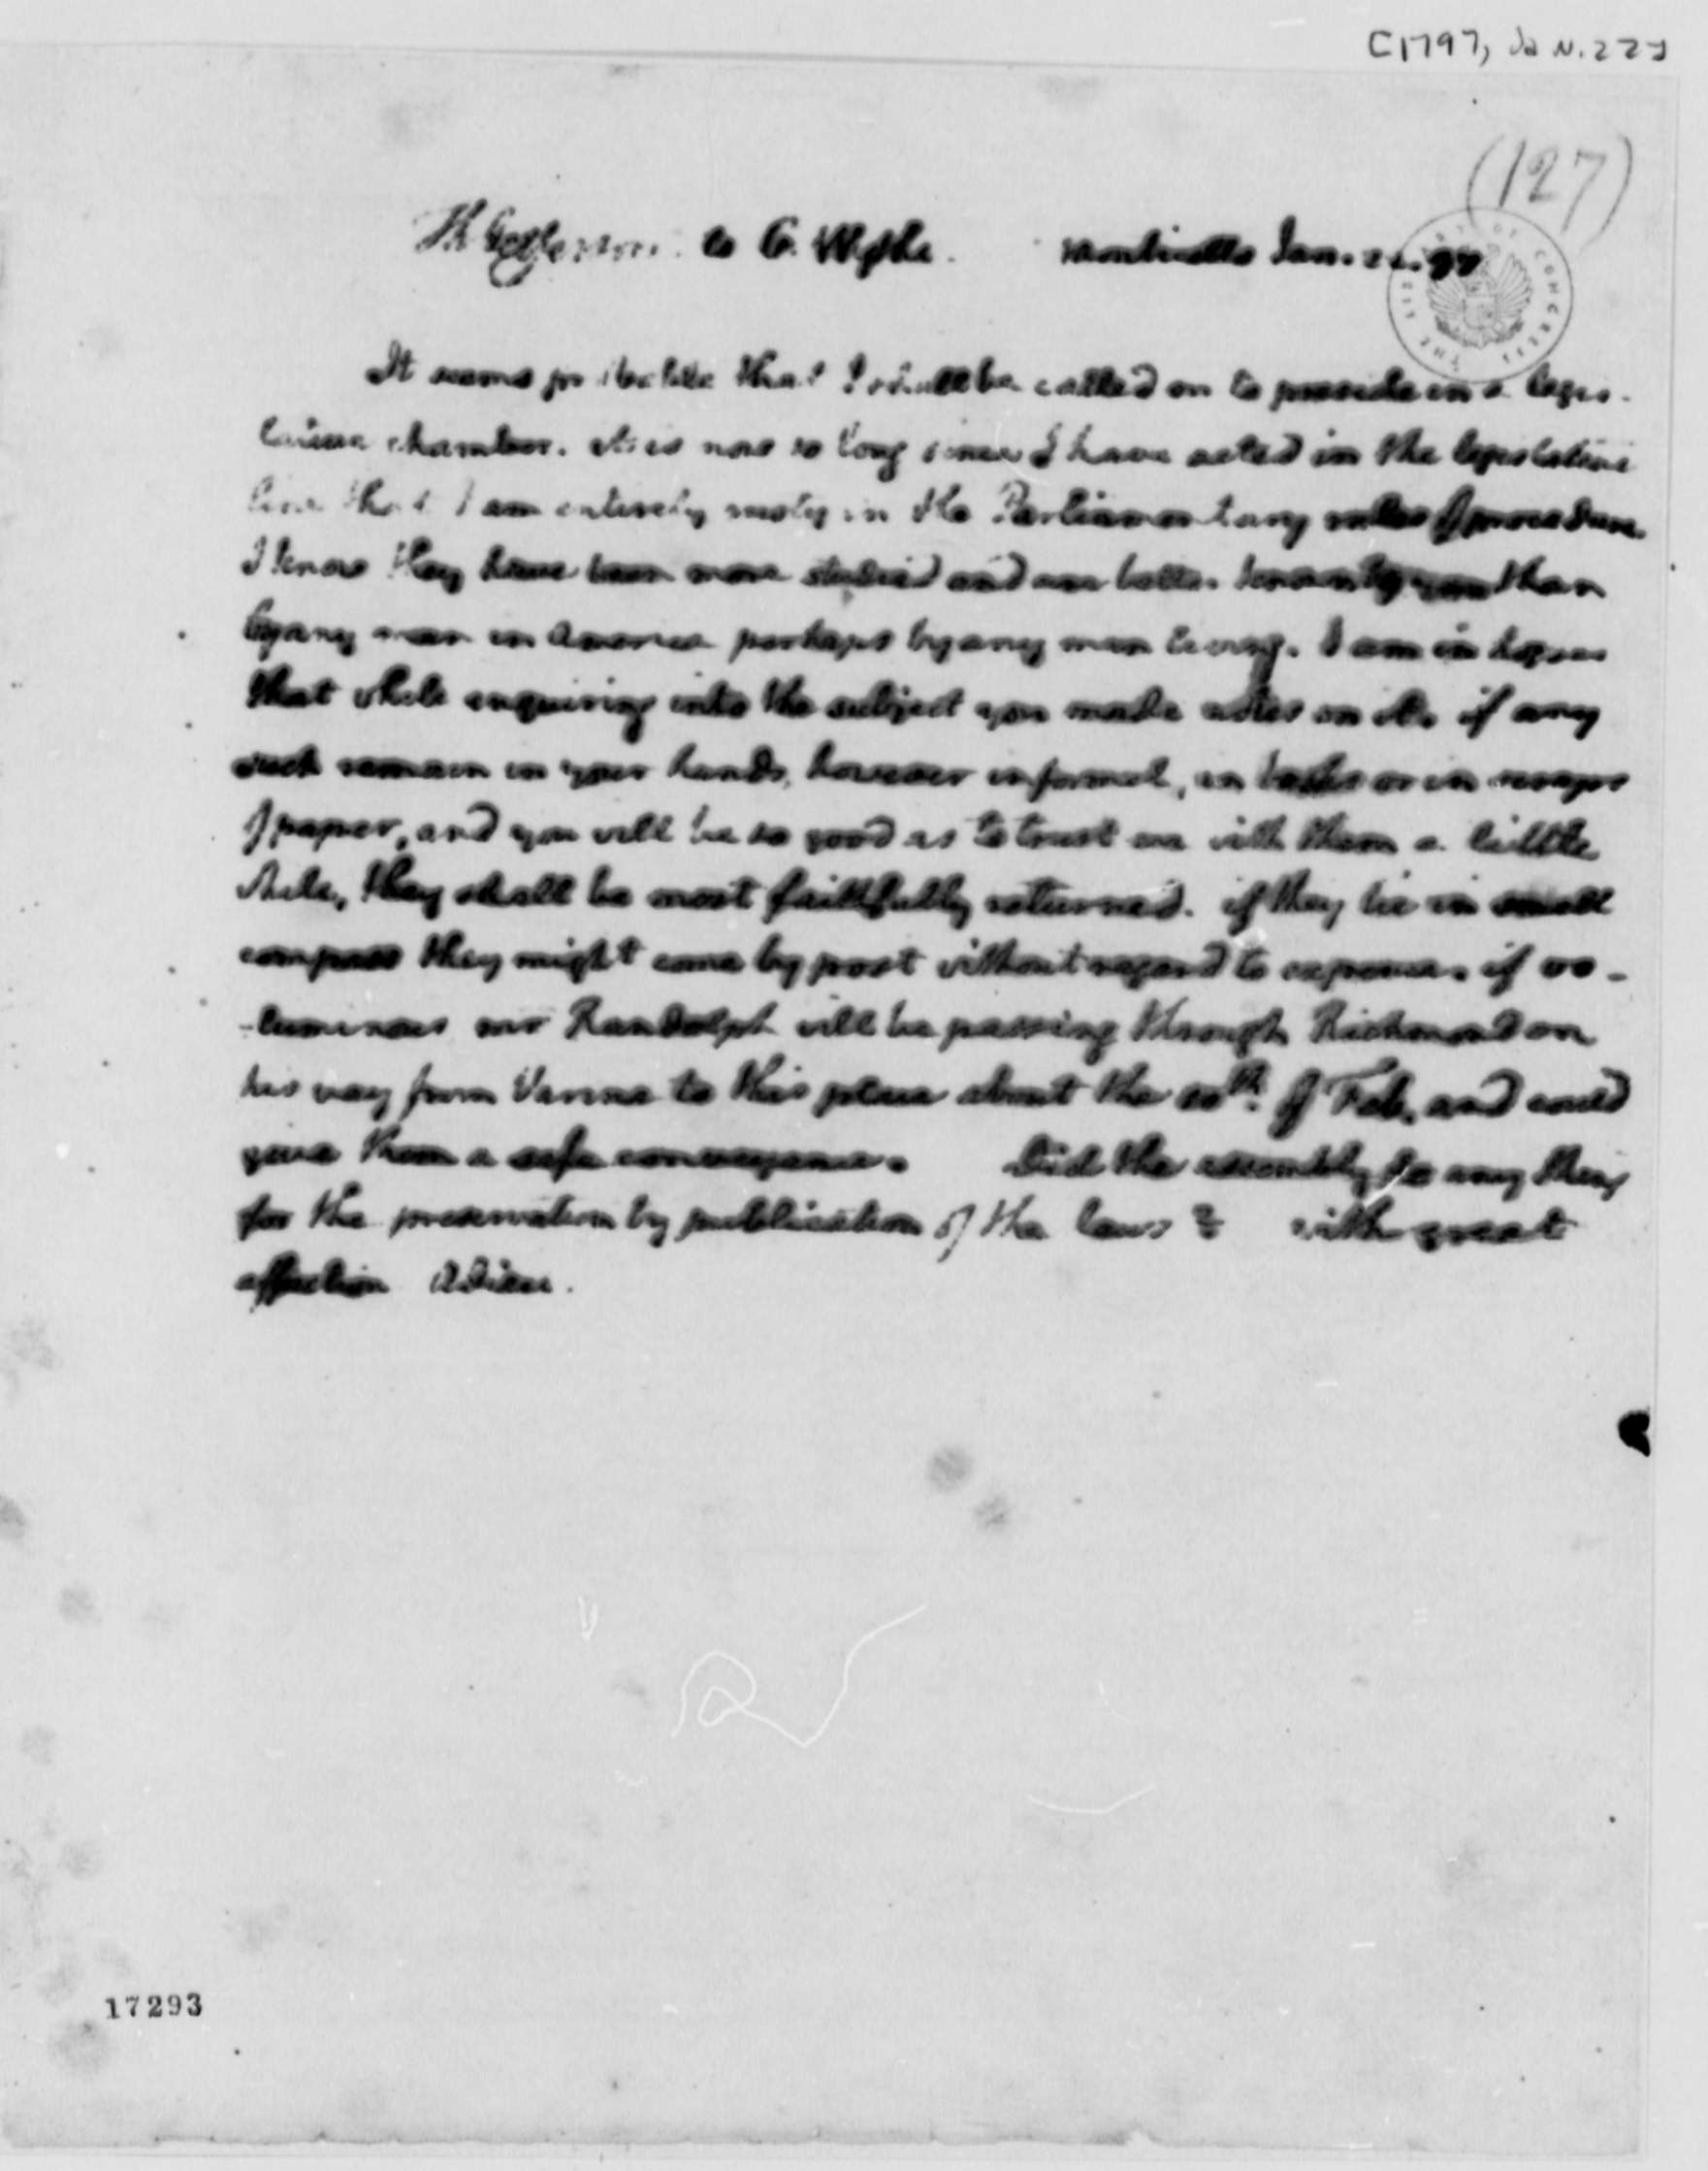 [1797, Jan. 22]
(127)
Th Jefferson to G. Wythe. Monticello Jan. 22. 97
THE LIBRARY OF CONGRESS
It seems probable that I shall be called on to preside in a legis-
lative chamber. it is now so long since I have acted in the legislative
line that I am entirely rusty in the Parliamentary rules of procedure.
I know they have been more studied and are better known by you than
by any man in America perhaps by any man living. I am in hopes
that while enquiring into the subject you made notes on it. if any
such remain in your hands, however informal, in books or in scraps
of paper, and you will be so good as to trust me with them a little
while, they shall be most faithfully returned. if they lie in small
compass they might come by post without regard to expence. if vo-
-luminous mr Randolph will be passing through Richmond on
his way from Varina to this place about the 10th. of Feb. and could
give them a safe conveyance. Did the assembly do any thing
for the preservation by publication of the laws? with great
affection Adieu.
17293